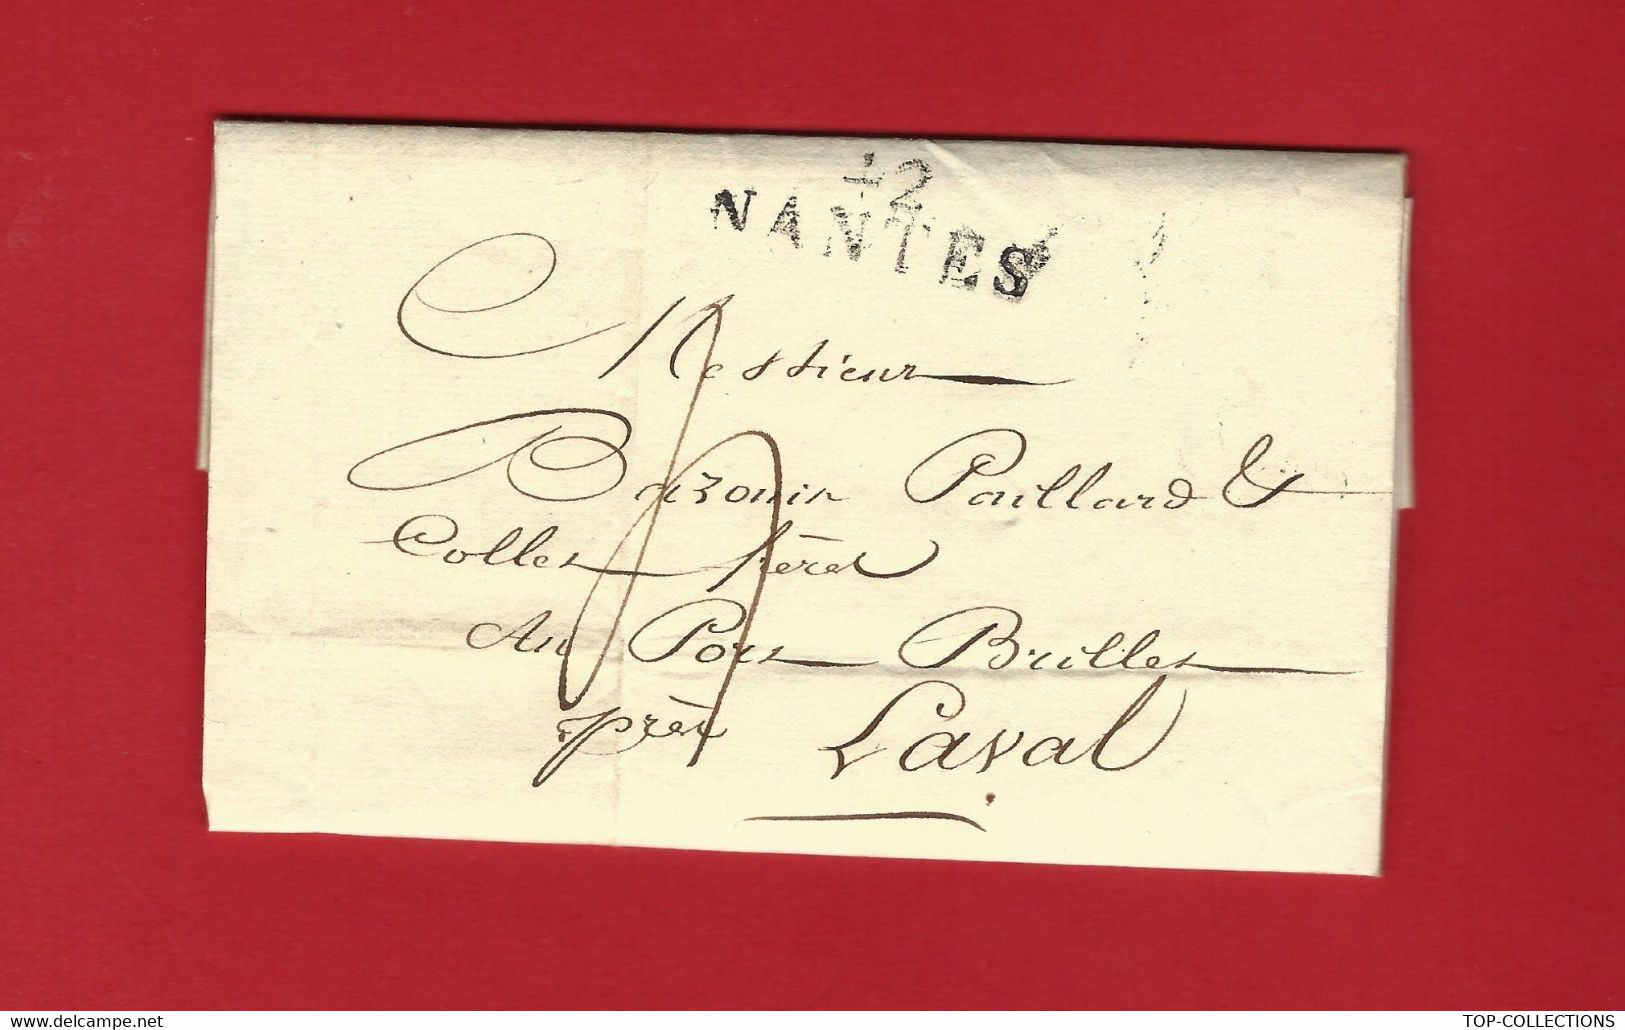 42
NANTES
Messieurs
Bazouin Paillard &
Colles frères
Au Port Brillet
près Laval
www.delcampe.net
TOP-COLLECTIONS